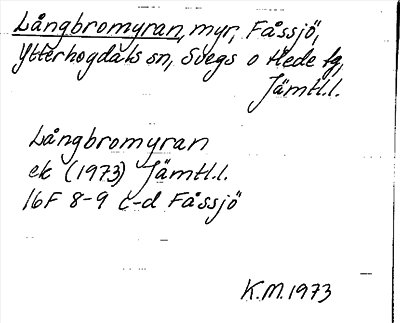 Långbromyran, myr, Fåssjö,
Ytterhogdals sn, Svegs o Hede tg,
Jämtl.l.
Långbromyran
ek (1973) Jämtl.l.
16F 8-9 c-d Fåssjö
K.M. 1973